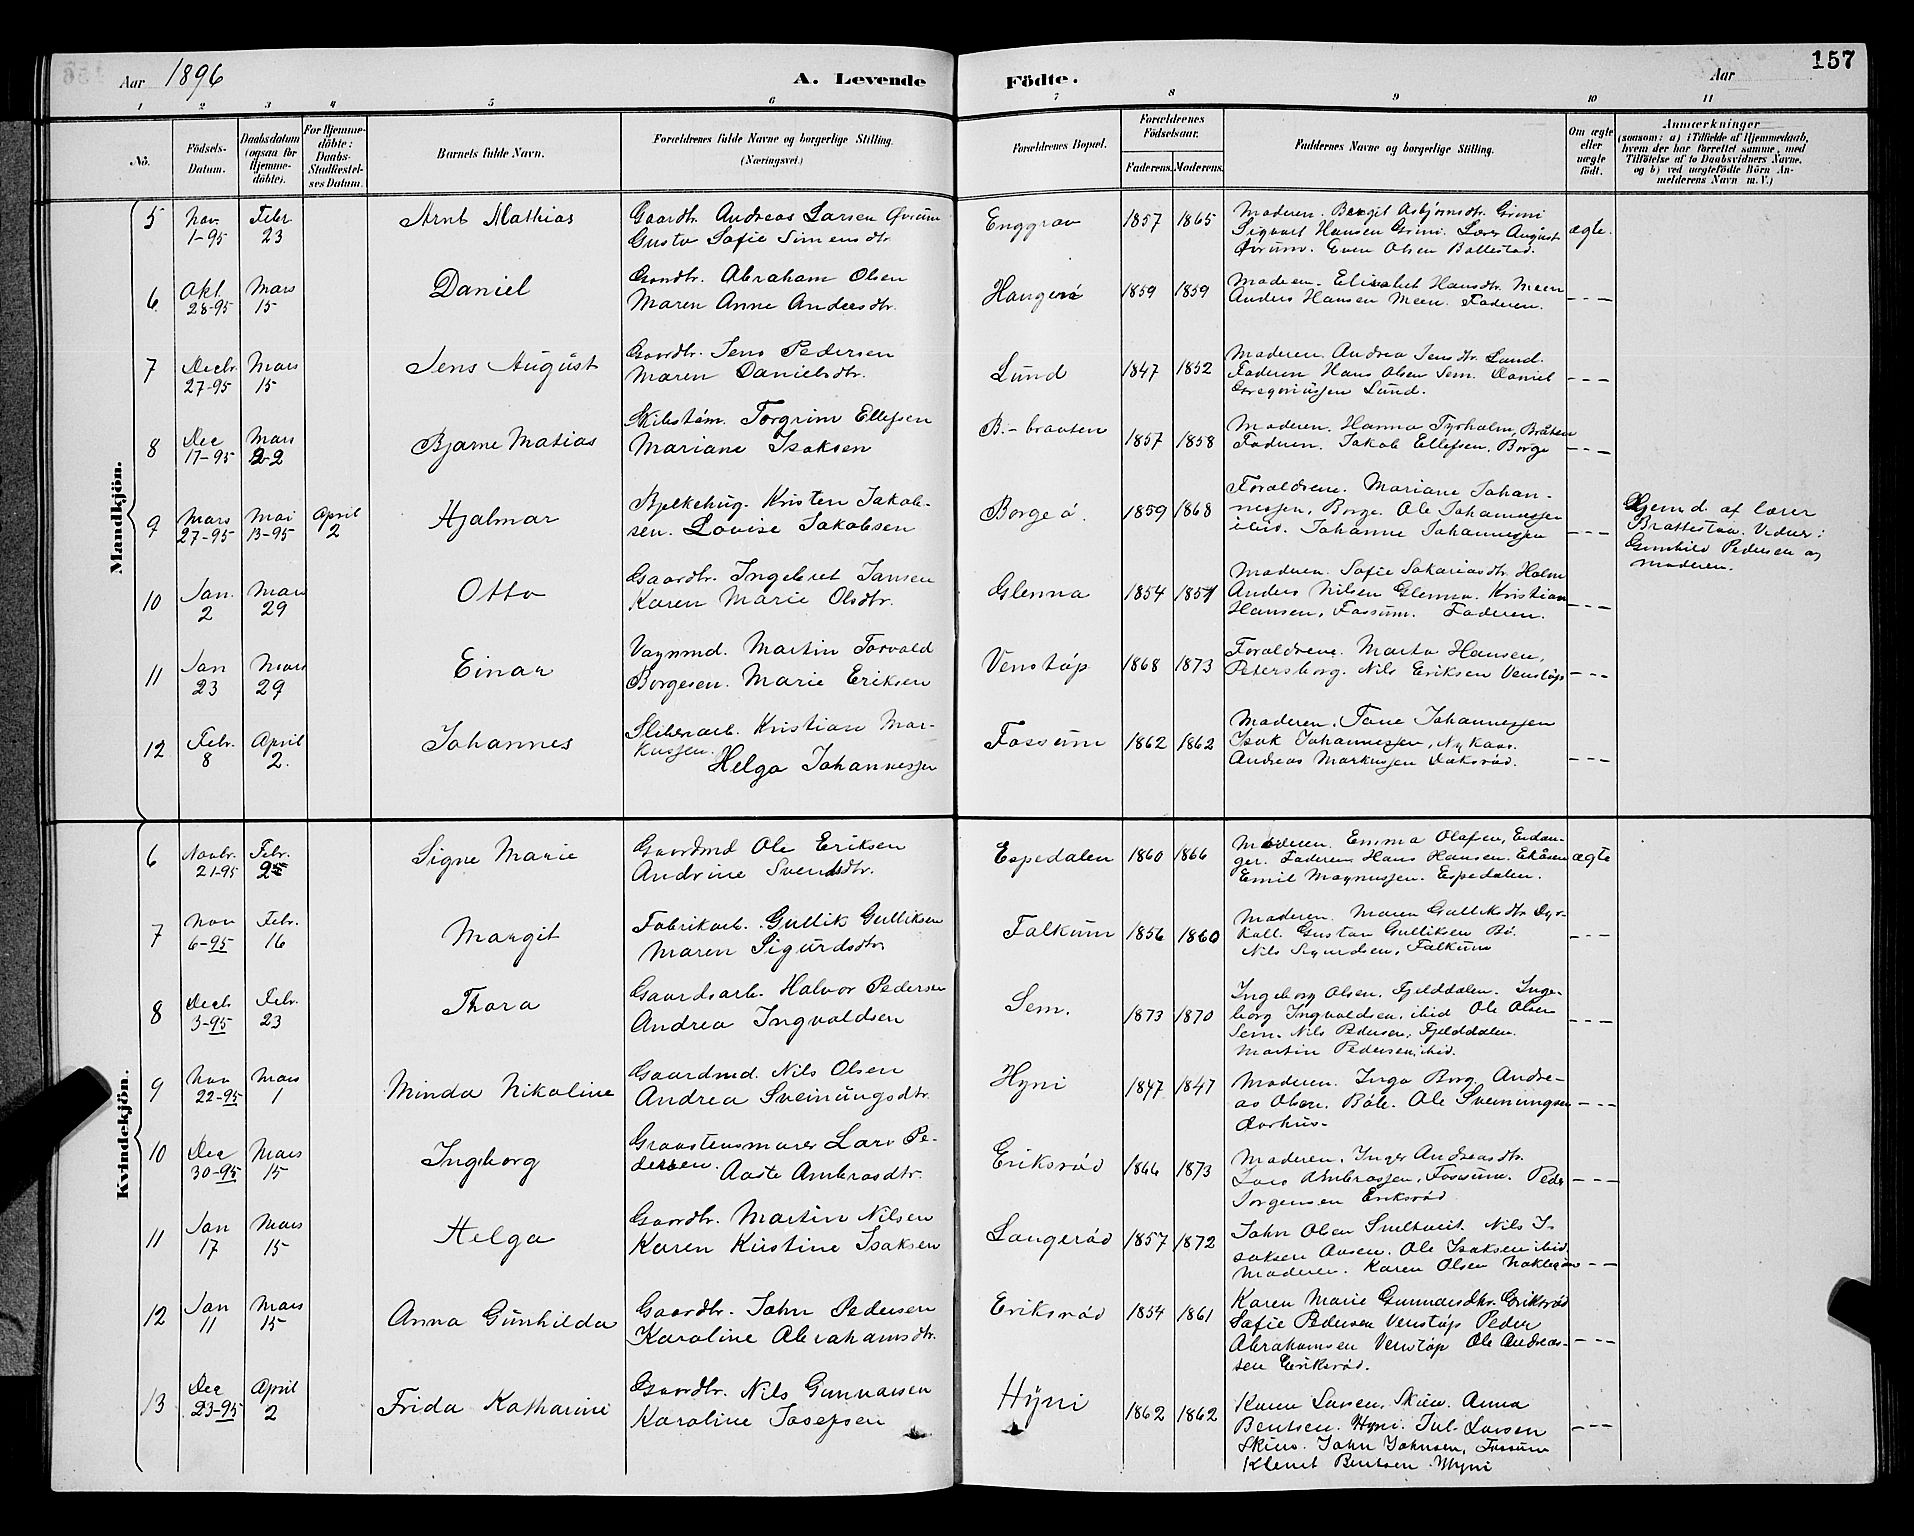 Aar 1896 A. Levende Födte. Aar 157
1 2 3 4 5 6 7 8 9 10 11
No. Födsels-Datum. Daabsdatum (ogsaa for Hjemmedöbte). For Hjemmedöbte: Daabs-Stadfæstelses Datum. Barnets fulde Navn. Forældrenes fulde Navne og borgerlige Stilling. (Næringsvei.) Forældrenes Bopæl. Forældrenes Födselsaar. Faderens. Moderens. Faddernes Navne og borgerlige Stilling. Om ægte eller uægte födt. Anmærkninger (saasom: a) i Tilfælde af Hjemmedaab, hvem der har forrettet samme, med Tilföielse af to Daabsvidners Navne, og b) ved uægtefödte Börn Anmelderens Navn m. V.)
Mandkjön.
5 Nov. 1-95 Febr 23 Arnt Mathias Gaardbr. Andreas Larsen Øvrum Enggrav 1857 1865 Moderen. Bergit Asbjørnsdtr. Grini
Gusta Sofie Simensdtr. Sigvart Hansen Grini. Lærer August ægte.
Øvrum. Even Olsen Ballestad.
6 Okt. 28-95 Mars 15 Daniel Gaardbr. Abraham Olsen 1859 1859 Moderen. Elisabet Hansdtr. Meen
Maren Anne Andersdtr. Anders Hansen Meen. Faderen. - - -
7 Decbr. 27-95 Mars 15 Jens August Gaardbr. Jens Pedersen Lund 1847 1852 Moderen. Andrea Jensdtr. Lund.
Maren Danielsdtr. Faderen Hans Olsen Sem. Daniel - - -
Gregoriussen Lund.
8 Dec 17-95 Mars 22 Bjarne Matias Torgrim Ellefsen B.-braaten 1857 1858 Moderen. Hanna Tyrholm, Bråten
Mariane Isaksen Faderen. Jakob Ellefsen, Borge - - -
9 Mars 27-95 Mai 13-95 April 2 Hjalmar Stylkehug. Kristen Jakob- Borgeå. 1859 1868 Forældrene. Mariane Johan-
sen. Lovise Jakobsen nessen, Borge. Ole Johannessen
ibid. Johanne Johannessen - - -
Hjemd. af lærer
Brattestaa. Vidner:
Gunhild Pedersen og
moderen.
10 Jan. 2 Mars 29 Otto Gaardbr. Ingebret Jansen Glenna 1854 1857 Moderen. Sofie Sakariasdtr. Holm
Karen Marie Olsdtr. Anders Nilsen Glenna. Kristian
Hansen, Fossum. Faderen. - - -
11 Jan 23 Mars 29 Einar Vognmd. Martin Torvald Venstøp 1868 1873 Forældrene. Marta Hansen,
Borgesen. Marie Eriksen Petersborg. Nils Eriksen Venstøp - - -
12 Febr. 8 April 2. Johannes Sliberarb. Kristian Mar- Fossum 1862 1862 Moderen. Tone Johannessen
kussen. Helga Johannessen Isak Johannessen, Nykaas.
Andreas Markussen Daksrød. - - -
Kvindekjön.
6 Novbr. 21-95 Febr. 25 Signe Marie Gaardmd Ole Eriksen Espedalen 1860 1866 Moderen. Emma Olafsen, Eidan-
Andrine Svendsdtr. ger. Faderen Hans Hansen. Ekåsen ægte
Emil Magnussen. Espedalen.
7 Nov 6-95 Febr. 16 Margit Fabrikarb. Gullik Gulliksen Falkum 1856 1860 Moderen. Maren Gulliksdtr. Dyr-
Maren Sigurdsdtr koll. Gustav Gulliksen Bø. - - -
Nils Sigurdsen, Falkum
8 Decb. 3-95 Febr. 23 Thora Gaardsarb. Halvor Pedersen Sem. 1873 1870 Ingeborg Olsen, Fjelddalen. Inge-
Andrea Ingvaldsen borg Ingvaldsen, ibid Ole Olsen
Sem. Nils Pedersen, Fjelddalen. - - -
Martin Pedersen, ibid.
9 Nov 22-95 Mars 1 Minda Nikoline Gaardmd. Nils Olsen Hyni 1847 1847 Moderen. Inga Borg Andre-
Andrea Sveinungsdtr. as Olsen. Böle. Ole Sveinungsen - - -
Aarhus.
10 Dec 30-95 Mars 15 Ingborg Graastensmurer Lars Pe- Eriksrød 1866 1873 Moderen. Inger Andreasdtr.
dersen. Aaste Ambrosdtr. Lars Ambrossen, Fossum. Peder - - -
Jorgensen Eriksrød
11 Jan 17 Mars 15 Helga Gaardbr. Martin Nilsen Langerød 1857 1872 John Olsen Sneltveit. Nils I-
Karen Kirstine Isaksen saksen Aasen. Ole Isaksen ibid
Moderen. Karen Olsen - - -
12 Jan 11 Mars 15 Anna Gunhilda Gaardbr. John Pedersen Eriksrød 1854 1861 Karen Marie Gunnarsdtr. Eriksrød
Karoline Abrahamsdtr. Sofie Pedersen Venstøp Peder
Abrahamsen Venstøp Ole Andreas- - - -
sen Eriksrød.
13 Dec 23-95 April 2 Frida Katharine Gaardbr. Nils Gunnarsen Hyni 1862 1862 Karen Larsen, Skien. Anna
Karoline Josefsen Bentsen. Hyni. Jul. Larsen - - -
Skien. John Johnsen, Fossum
Klemet Bentsen. Hyni